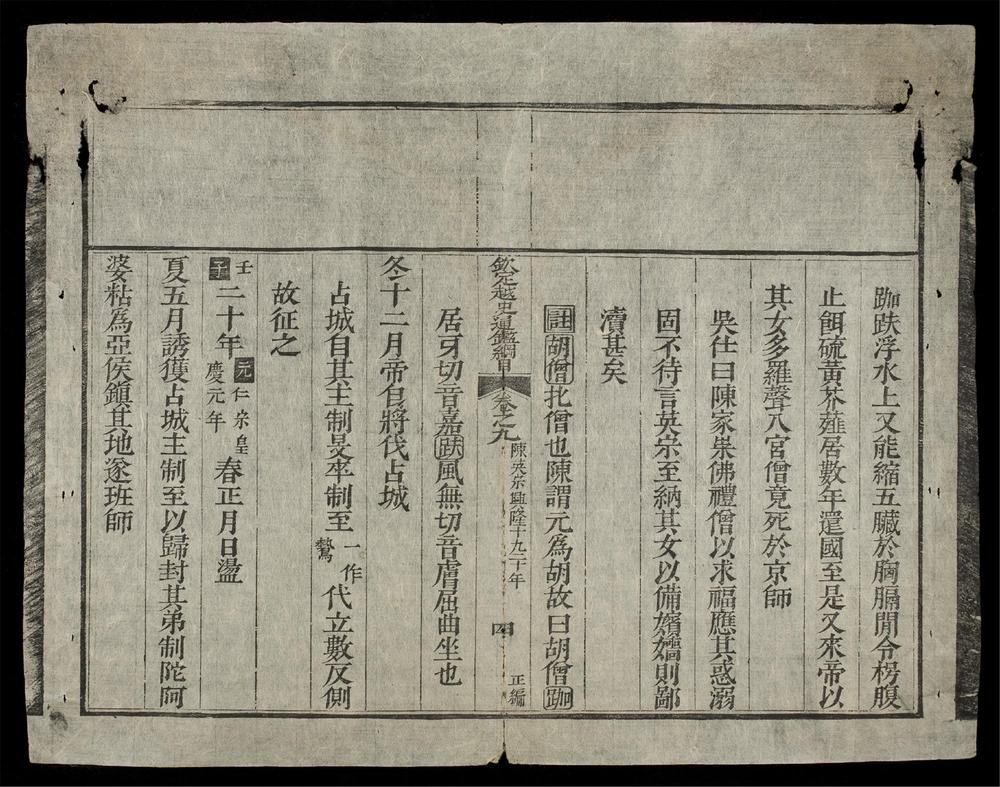 跏趺浮水上又能縮五臟於胸膈閒令楞腹
止餌硫黃芥薤居數年還國至是又來帝以
其女多羅聲入宮僧竟死於京師
吳仕曰陳家崇佛禮僧以求福應其惑溺
固不待言英宗至納其女以備嬪嬙則鄙
瀆甚矣
註胡僧北僧也陳謂元爲胡故曰胡僧跏
欽定越史通鑑綱目 卷之九 陳英宗興隆十九二十年 四 正編
居牙切音嘉趺風無切音膚屈曲坐也
冬十二月帝自將伐占城
占城自其主制旻卒制至一作鷙代立數反側
故征之
壬子二十年元仁宗皇慶元年春正月日盪
夏五月誘獲占城主制至以歸封其弟制陀阿
婆粘爲亞侯鎭其地遂班師